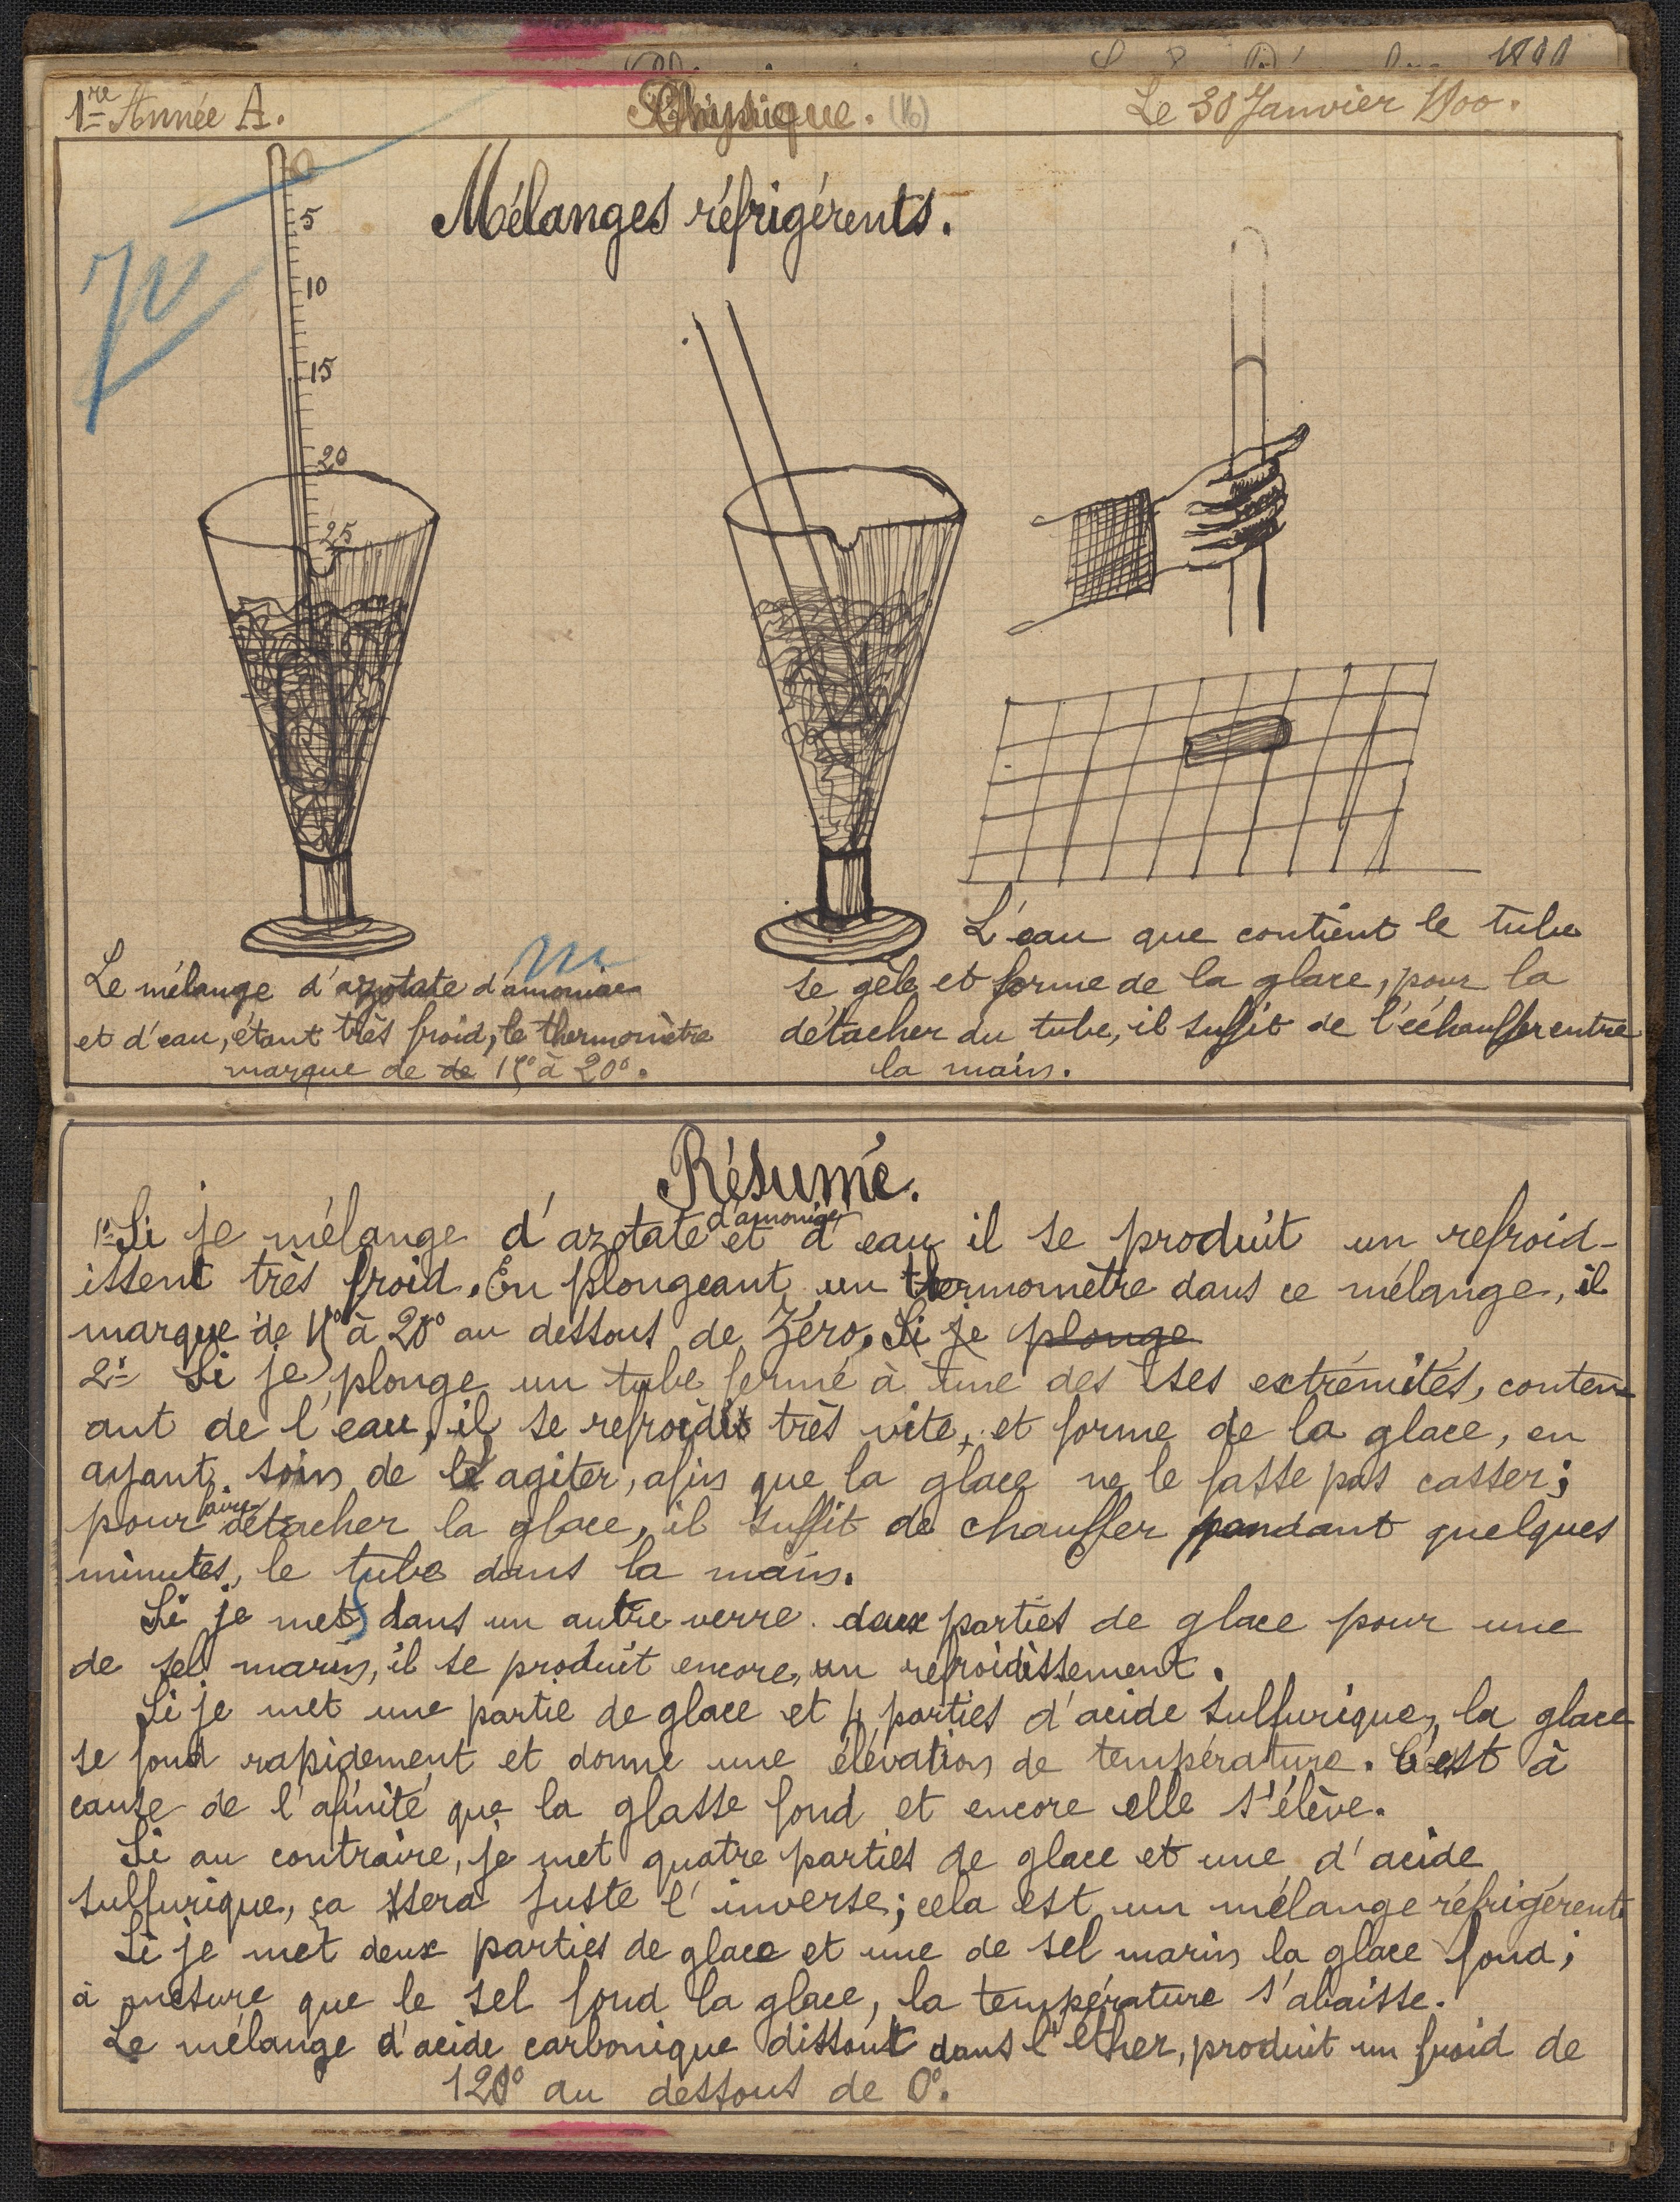 1re Année A.
Physique. (16)
Le 30 Janvier 1900.
Mélanges réfrigérents.
0
5
10
15
20
25
Le mélange d'azotate d'amoniac
et d'eau, étant très froid, le thermomètre
marque de de 15° à 20°.
L'eau que contient le tube
se gèle et forme de la glace, pour la
détacher du tube, il suffit de l'échauffer entre
la main.
Résumé.
1° Si je mélange d'azotate d'amoniac et d'eau il se produit un refroid-
issent très froid. En plongeant un thermomètre dans ce mélange, il
marque de 15° à 20° au dessous de Zéro. Si je plonge
2° Si je plonge un tube fermé à une des ses extrémités, conten-
ant de l'eau, il se refroidit très vite, et forme de la glace, en
ayant soin de l'agiter, afin que la glace ne le fasse pas casser;
pour faire détacher la glace, il suffit de chauffer pendant quelques
minutes, le tube dans la main.
Si je met dans un autre verre deux parties de glace pour une
de sel marin, il se produit encore, un refroidissement.
Si je met une partie de glace et 4 parties d'acide sulfurique, la glace
se fond rapidement et donne une élévation de température. C'est à
cause de l'afinité que la glasse fond et encore elle s'élève.
Si au contraire, je met quatre parties de glace et une d'acide
sulfurique, ça sera juste l'inverse; cela est un mélange réfrigérent
Si je met deux parties de glace et une de sel marin la glace fond;
à mesure que le sel fond la glace, la température s'abaisse.
Le mélange d'acide carbonique dissout dans l'éther, produit un froid de
120° au dessous de 0°.